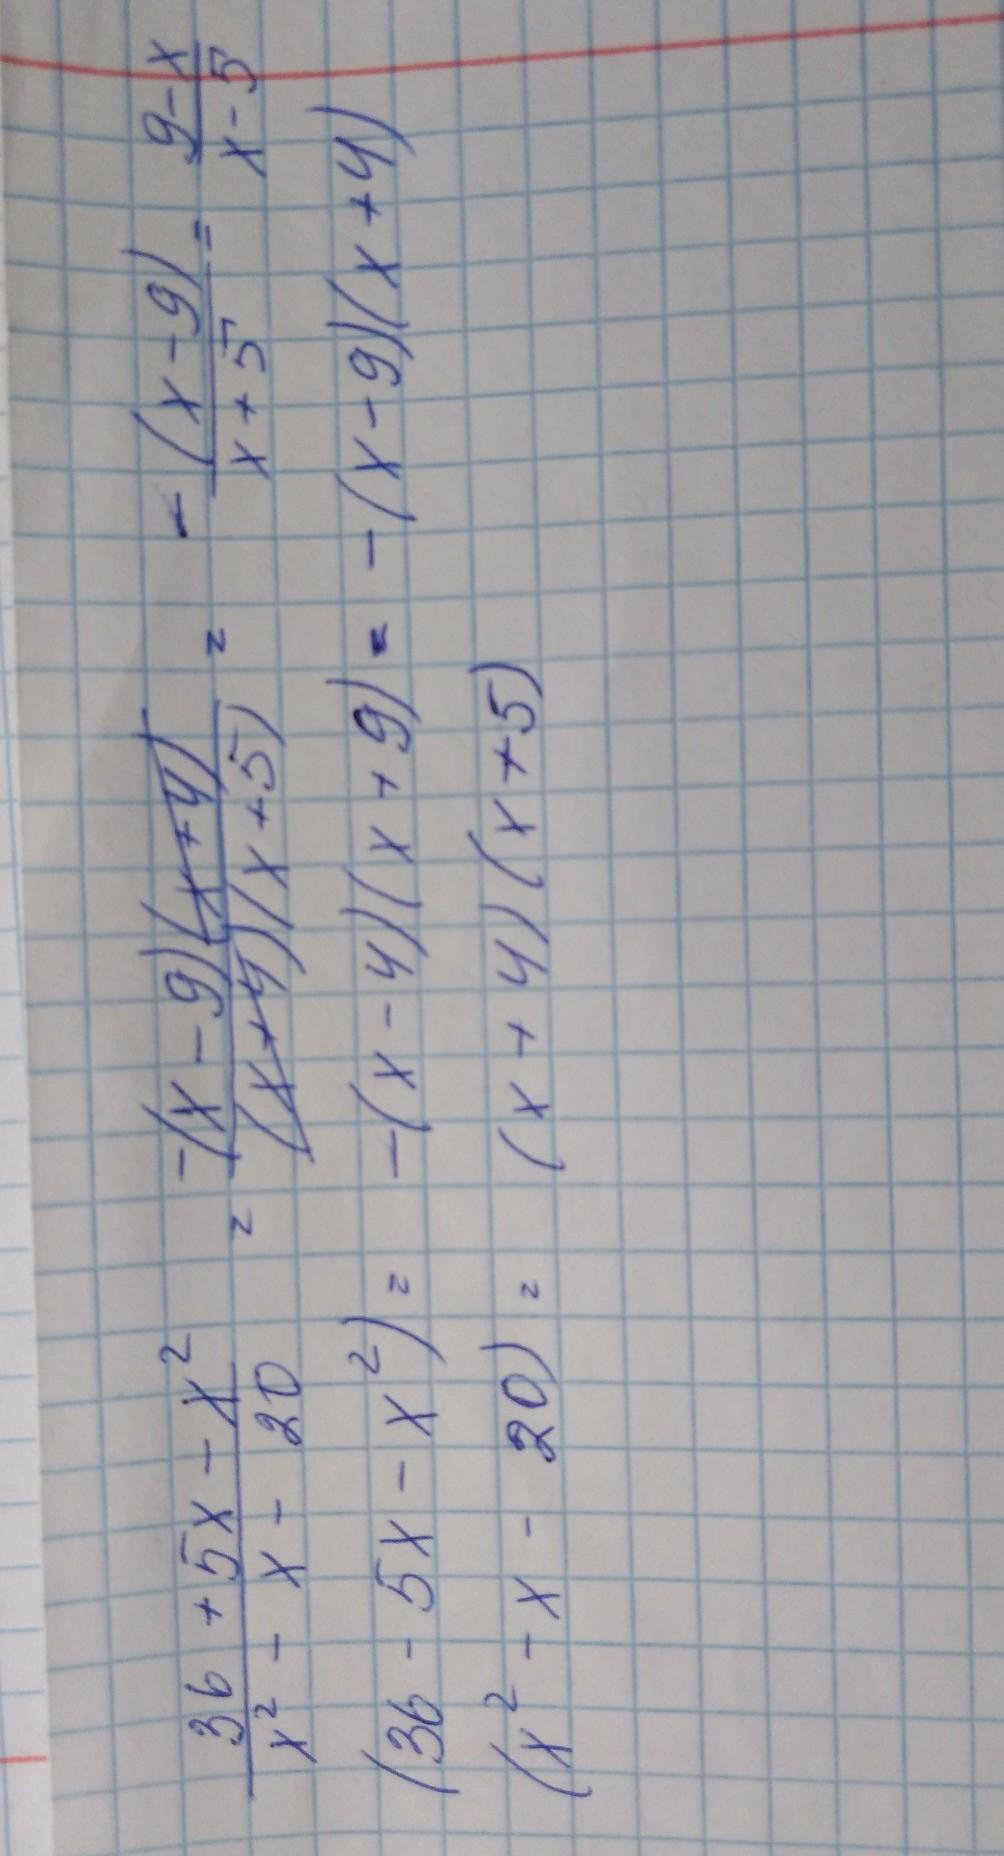 (36 + 5x - x²)/(x² - x - 20) = (-(x - 9)(x + 4))/((x + 4)(x + 5)) = - (x - 9)/(x + 5) = (9 - x)/(x - 5)
(36 - 5x - x²) = -(x - 4)(x + 9) = -(x - 9)(x + 4)
(x² - x - 20) = (x + 4)(x + 5)